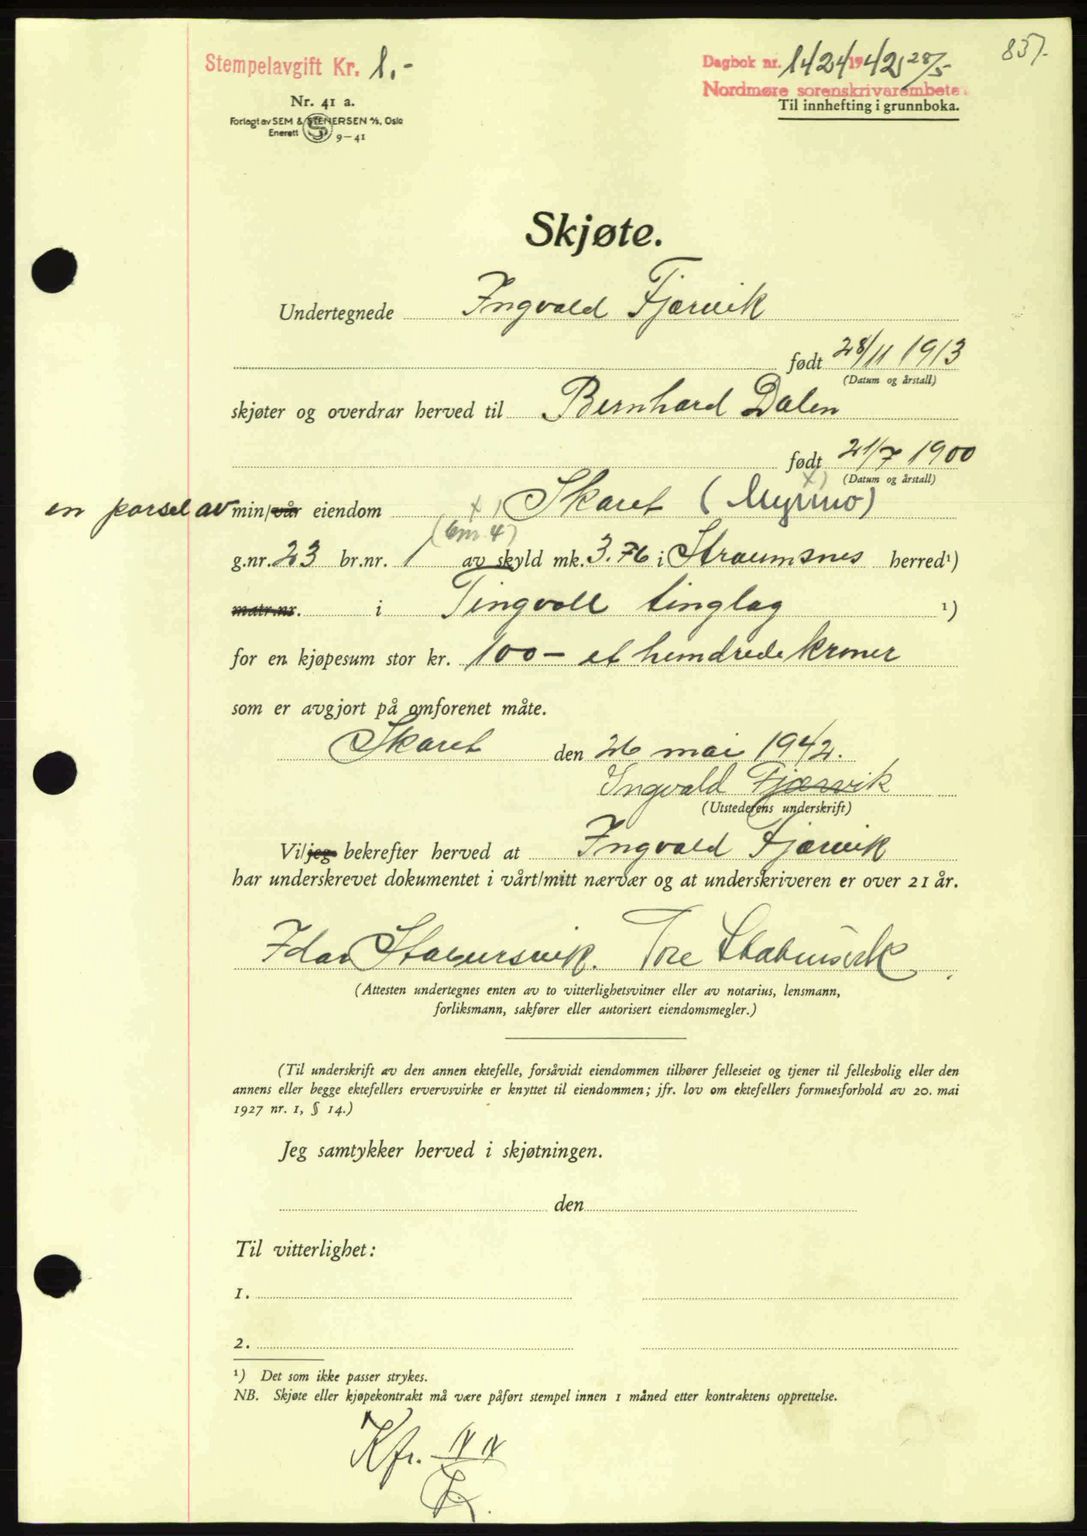 837.
Stempelavgift Kr. 1.-
Dagbok nr. 1424 1942 28/5
Nordmøre sorenskrivarembete.
Til innhefting i grunnboka.
Nr. 41 a.
Forlagt av SEM & STENERSEN A/S, Oslo
Enerett S 9-41
Skjøte.
Undertegnede Ingvald Fjærvik
født 28/11 1913
(Datum og årstall)
skjøter og overdrar herved til Bernhard Dalen
født 21/7 1900
(Datum og årstall)
en parsel av min/vår eiendom x) Skaret (Myrmo) x)
(bm. 4)
g.nr. 23 br.nr. 1 av skyld mk. 3.76 i Straumsnes herred¹)
matr.nr. i Tingvoll tinglag ¹)
for en kjøpesum stor kr. 100 - et hundrede kroner
som er avgjort på omforenet måte.
Skaret den 26 mai 1942.
Ingvald Fjærvik
(Utstederens underskrift)
Vi/jeg bekrefter herved at Ingvald Fjærvik
har underskrevet dokumentet i vårt/mitt nærvær og at underskriveren er over 21 år.
Idar Stabursvik. Tore Stabursvik
(Attesten undertegnes enten av to vitterlighetsvitner eller av notarius, lensmann,
forliksmann, sakfører eller autorisert eiendomsmegler.)
(Til underskrift av den annen ektefelle, forsåvidt eiendommen tilhører felleseiet og tjener til fellesbolig eller den
annens eller begge ektefellers ervervsvirke er knyttet til eiendommen; jfr. lov om ektefellers formuesforhold av 20. mai
1927 nr. 1, § 14.)
Jeg samtykker herved i skjøtningen.
den
Til vitterlighet:
1.
2.
¹) Det som ikke passer strykes.
NB. Skjøte eller kjøpekontrakt må være påført stempel innen 1 måned etter kontraktens opprettelse.
Kfr.